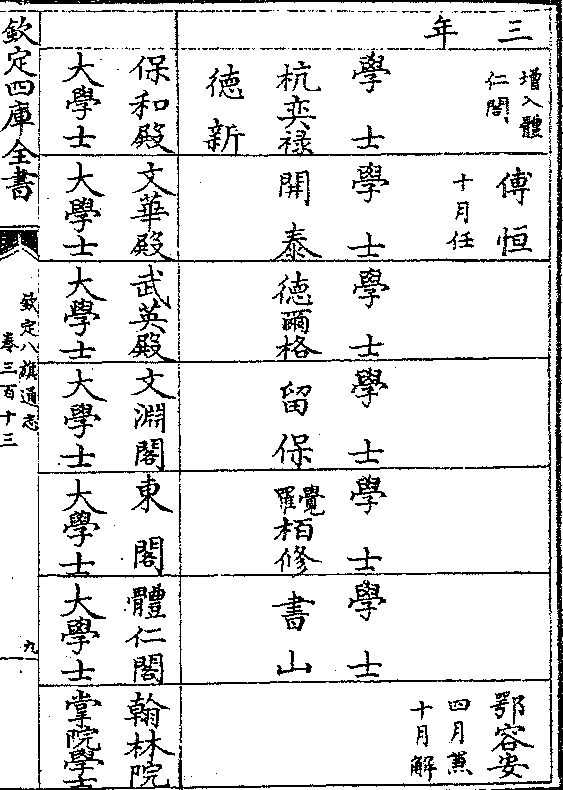 三年
增入體
仁閣
傅恒
十月任
鄂容安
四月兼
十月解
學士
學士
學士
學士
學士
學士
杭奕祿
開泰
德爾格
留保
覺羅柏修
書山
德新
保和殿
大學士
文華殿
大學士
武英殿
大學士
文淵閣
大學士
東閣
大學士
體仁閣
大學士
翰林院
掌院學士
欽定四庫全書
欽定八旗通志
卷三百十三
九